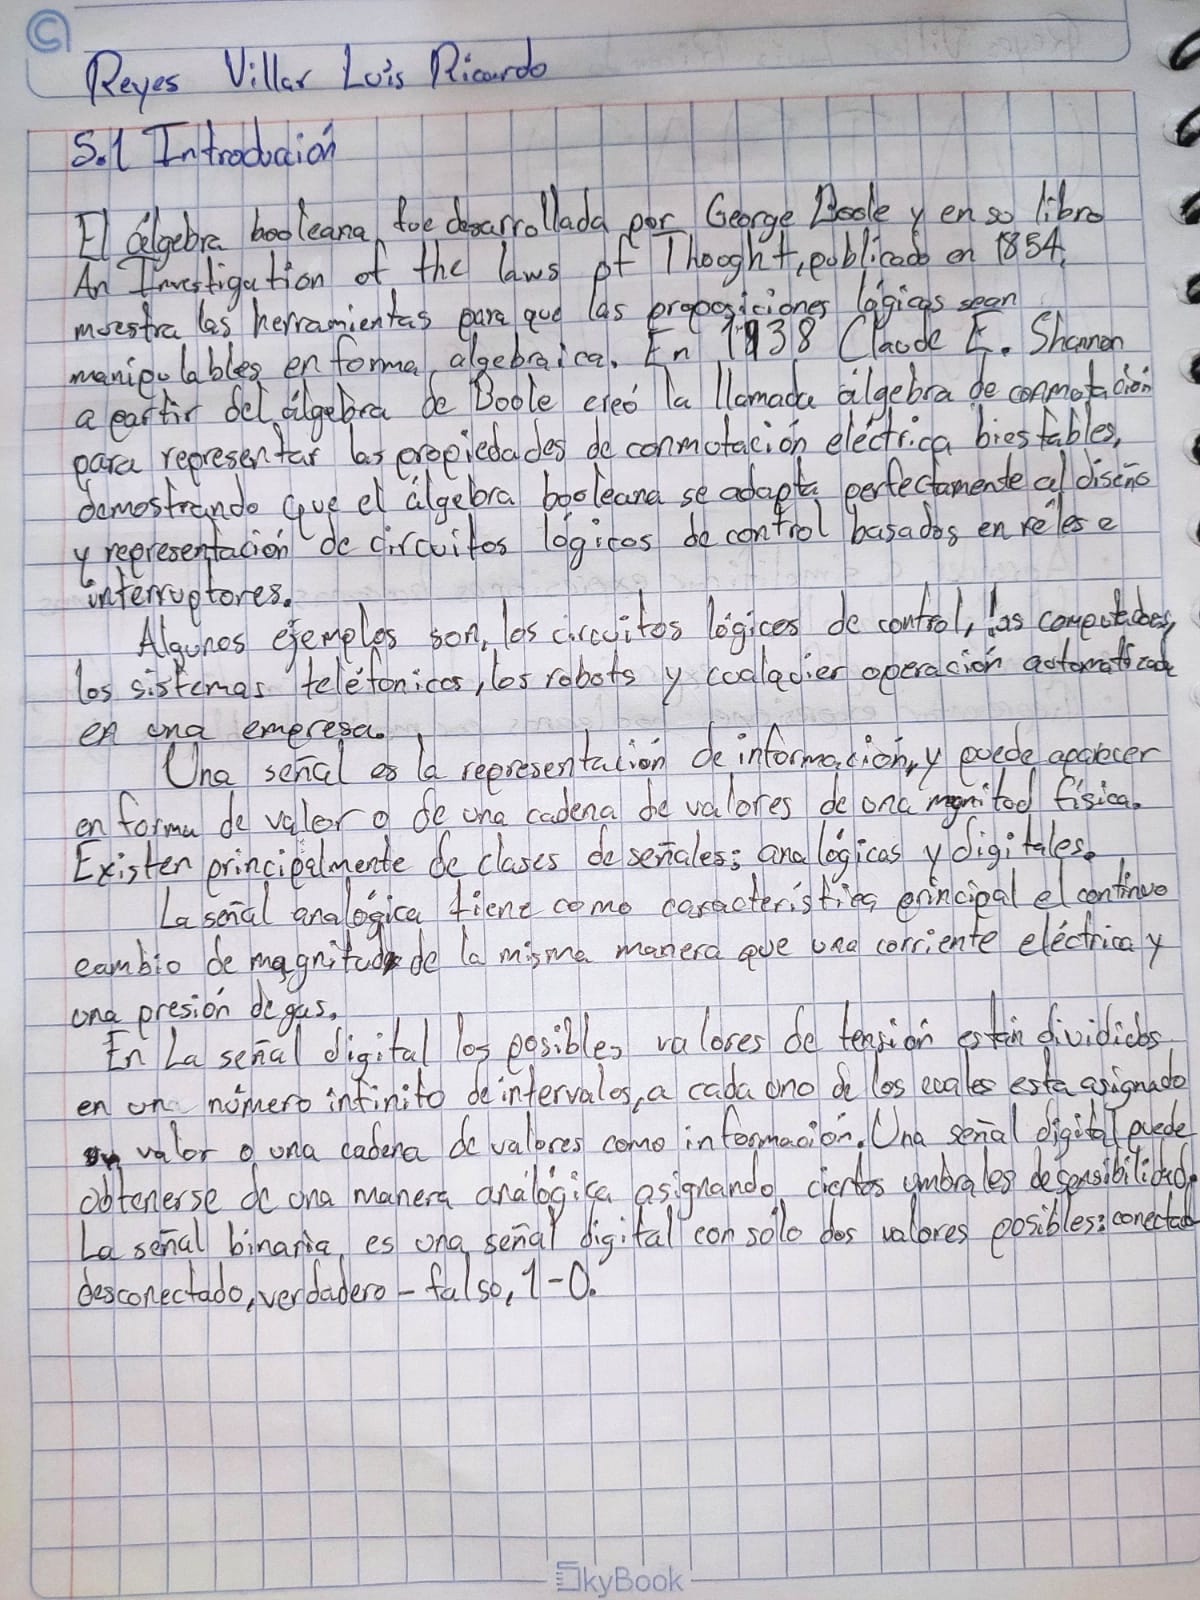 Reyes Villar Luis Ricardo
5.1 Introducción
El álgebra booleana fue desarrollada por George Boole y en su libro
An Investigation of the laws of Thooght, publicado en 1854,
muestra las herramientas para que las proposiciones lógicas sean
manipulables en forma algebraica. En 1938 Claude E. Shannon
a partir del álgebra de Boole creó la llamada álgebra de conmutación
para representar las propiedades de conmutación eléctrica biestables,
demostrando que el álgebra booleana se adapta perfectamente al diseño
y representación de circuitos lógicos de control basados en relés e
interruptores.
Algunos ejemplos son, los circuitos lógicos de control, las
los sistemas telefónicos, los robots y cualquier operación automatizada
en una empresa.
Una señal es la representación de información, y puede aparecer
en forma de valor o de una cadena de valores de una magnitud física.
Existen principalmente de clases de señales; analógicas y digitales.
La señal analógica tiene como característica principal el continuo
cambio de magnitud de la misma manera que una corriente eléctrica y
una presión de gas.
En La señal digital los posibles valores de tensión están divididos
en un número infinito de intervalos, a cada uno de los cuales esta asignado
un valor o una cadena de valores como información. Una señal digital puede
obtenerse de una manera analógica asignando ciertos umbrales de sensibilidad.
La señal binaria, es una señal digital con sólo dos valores posibles: conectado
desconectado, verdadero - falso, 1-0.
SkyBook